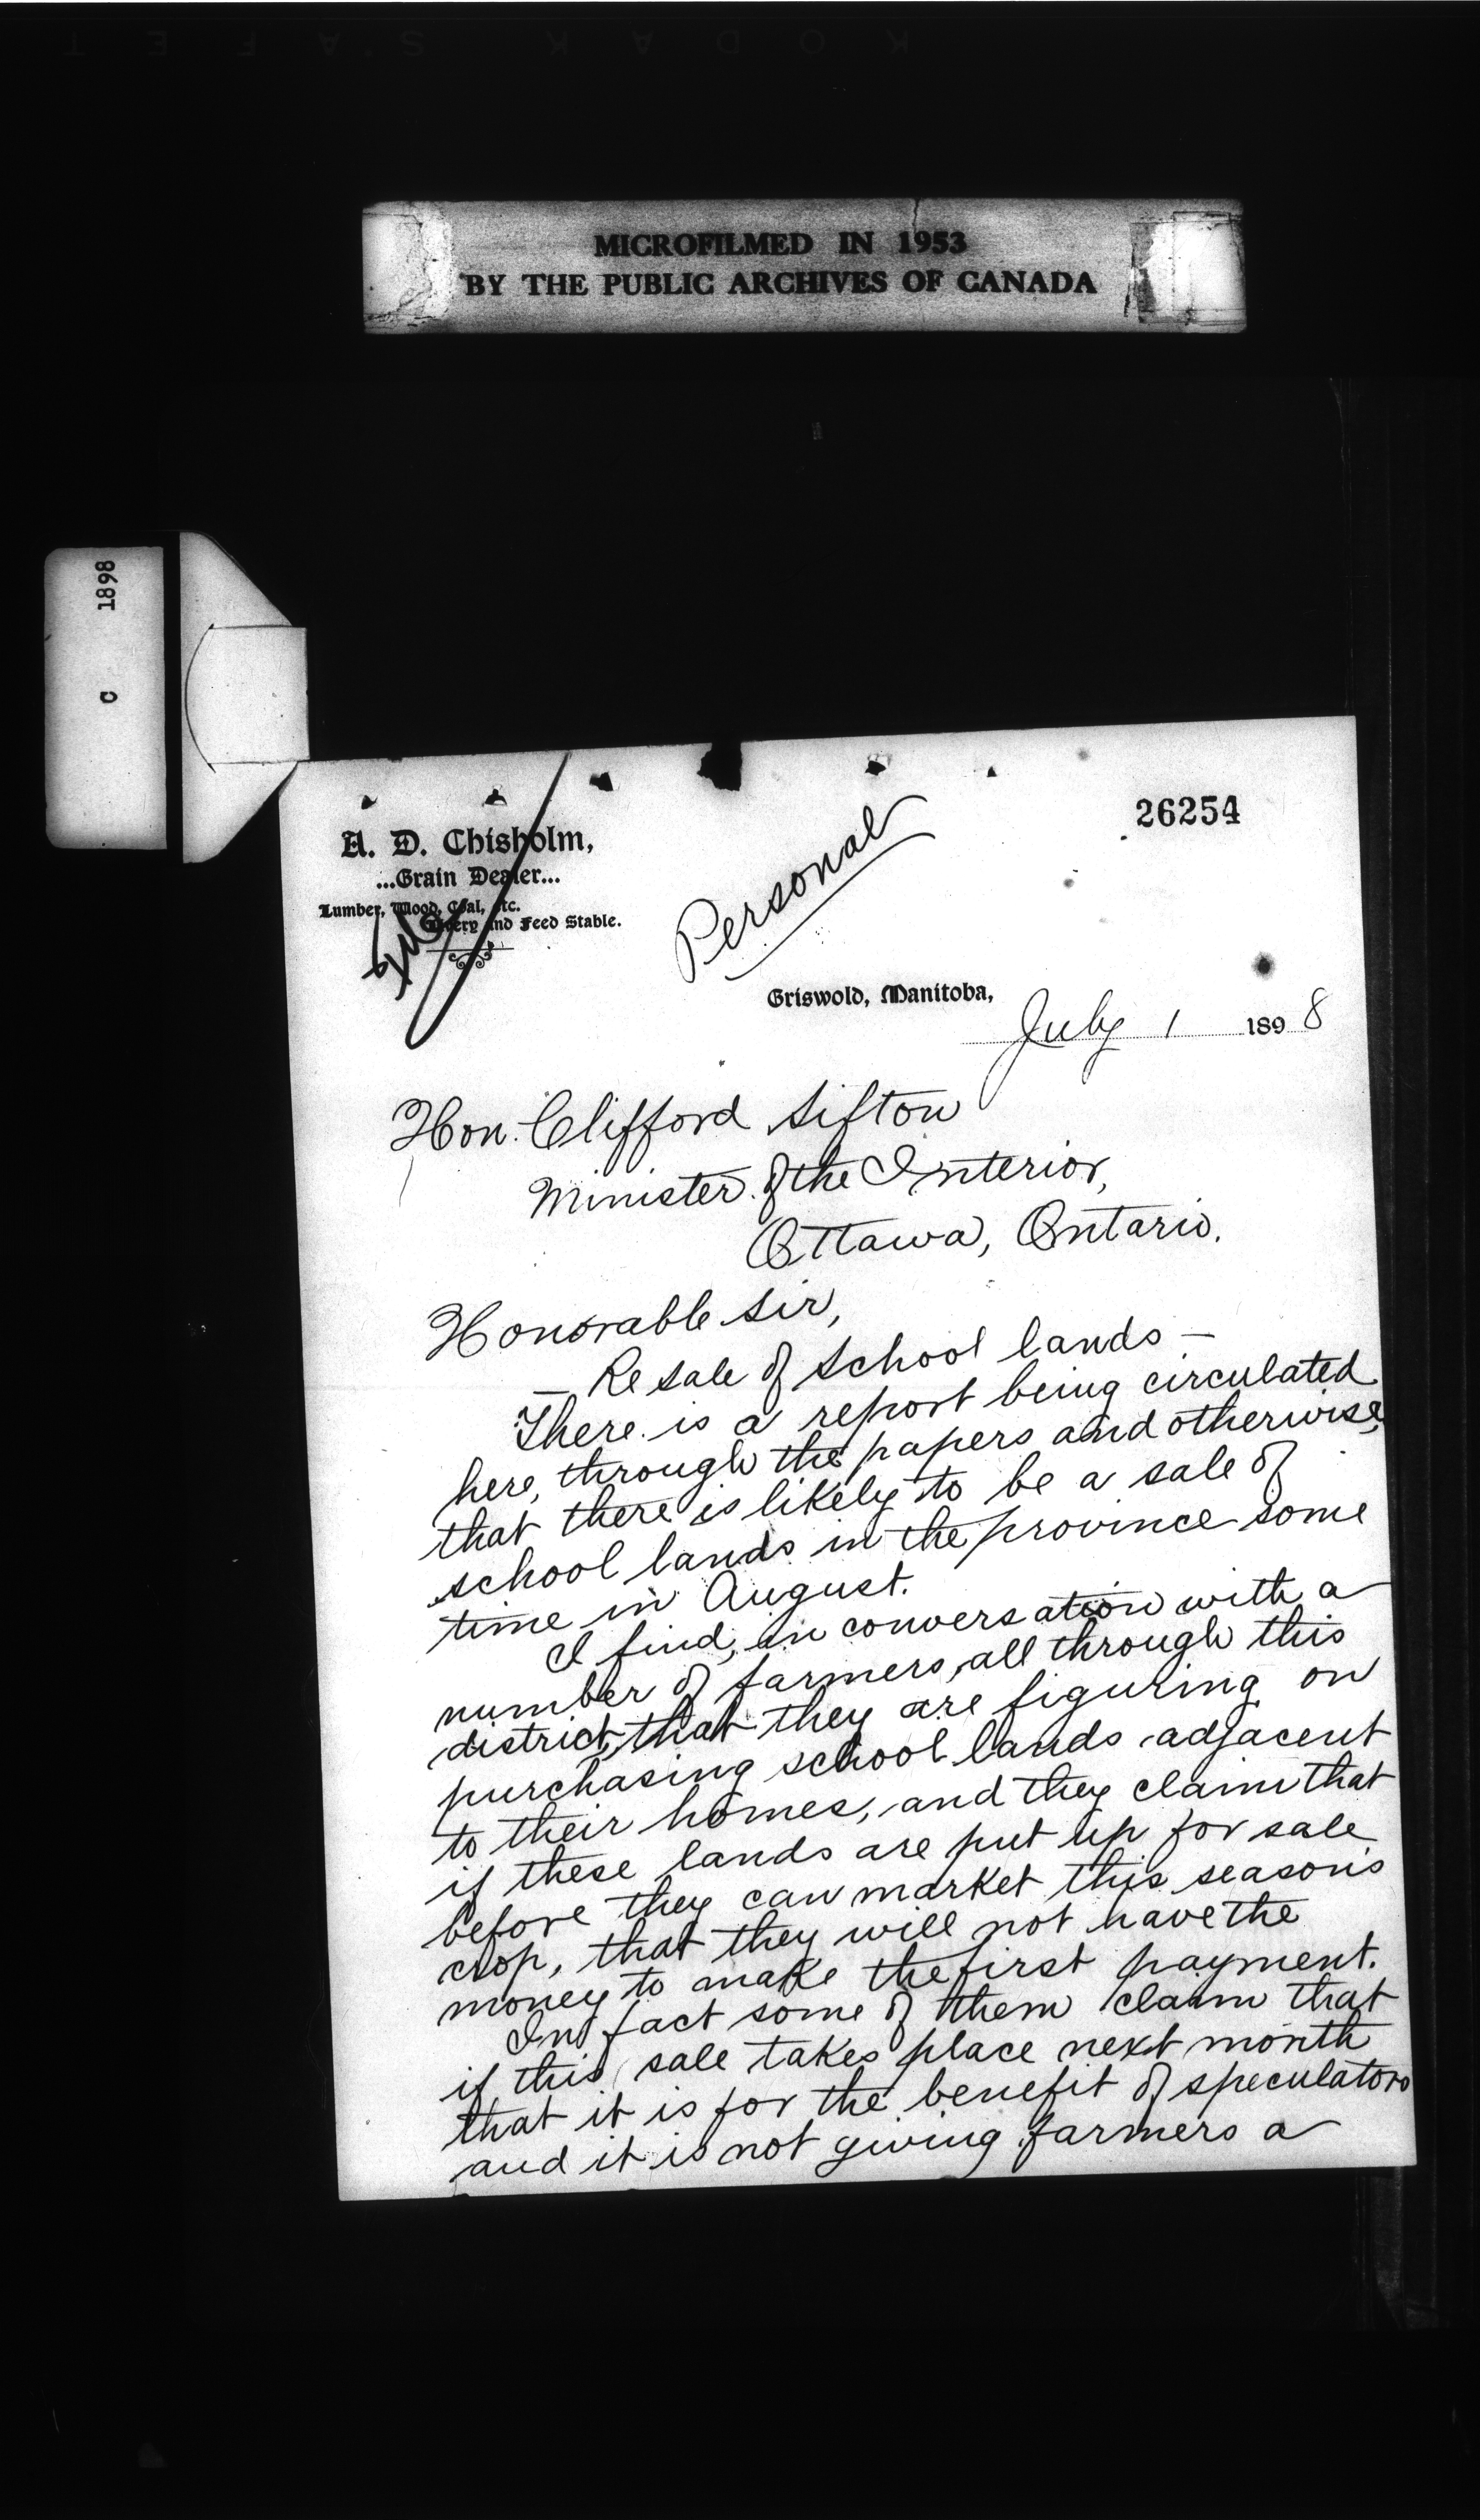 KODAK SAFET
MICROFILMED IN 1953
BY THE PUBLIC ARCHIVES OF CANADA
C 1898
26254
A. D. Chisholm,
...Grain Dealer...
Lumber, Wood, Coal, etc.
Livery and Feed Stable.
Personal
Griswold, Manitoba,
July 1 1898
Hon. Clifford Sifton
Minister of the Interior,
Ottawa, Ontario.
Honorable Sir,
— Re sale of School lands —
There is a report being circulated
here, through the papers and otherwise,
that there is likely to be a sale of
school lands in the province some
time in August.
I find, in conversation with a
number of farmers, all through this
district, that they are figuring on
purchasing school lands adjacent
to their homes, and they claim that
if these lands are put up for sale
before they can market this season's
crop, that they will not have the
money to make the first payment.
In fact some of them claim that
if this sale takes place next month
that it is for the benefit of speculators
and it is not giving farmers a